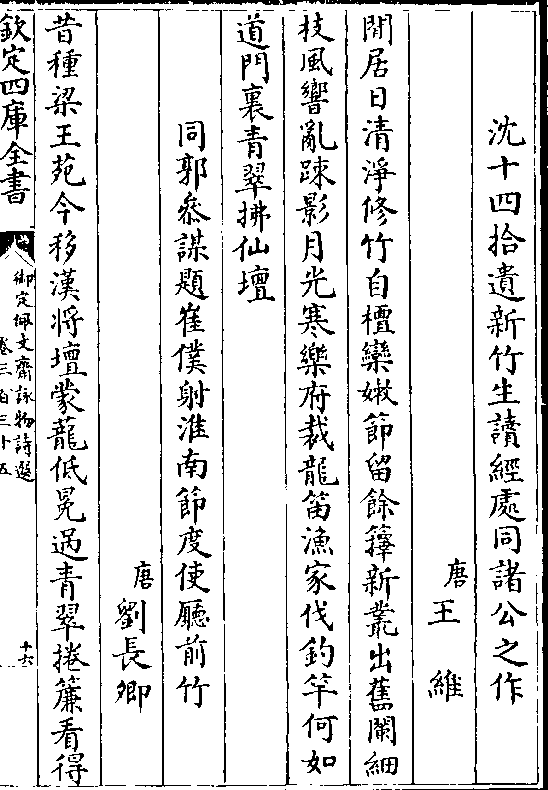 沈十四拾遺新竹生讀經處同諸公之作
唐王維
閒居日清淨修竹自檀欒嫩節留餘籜新叢出舊闌細
枝風響亂踈影月光寒樂府裁龍笛漁家伐釣竿何如
道門裏青翠拂仙壇
同郭叅謀題崔僕射淮南節度使廳前竹
唐劉長卿
昔種梁王苑今移漢將壇蒙蘢低冕過青翠捲簾看得
欽定四庫全書
御定佩文齋詠物詩選
卷三百三十五
十六